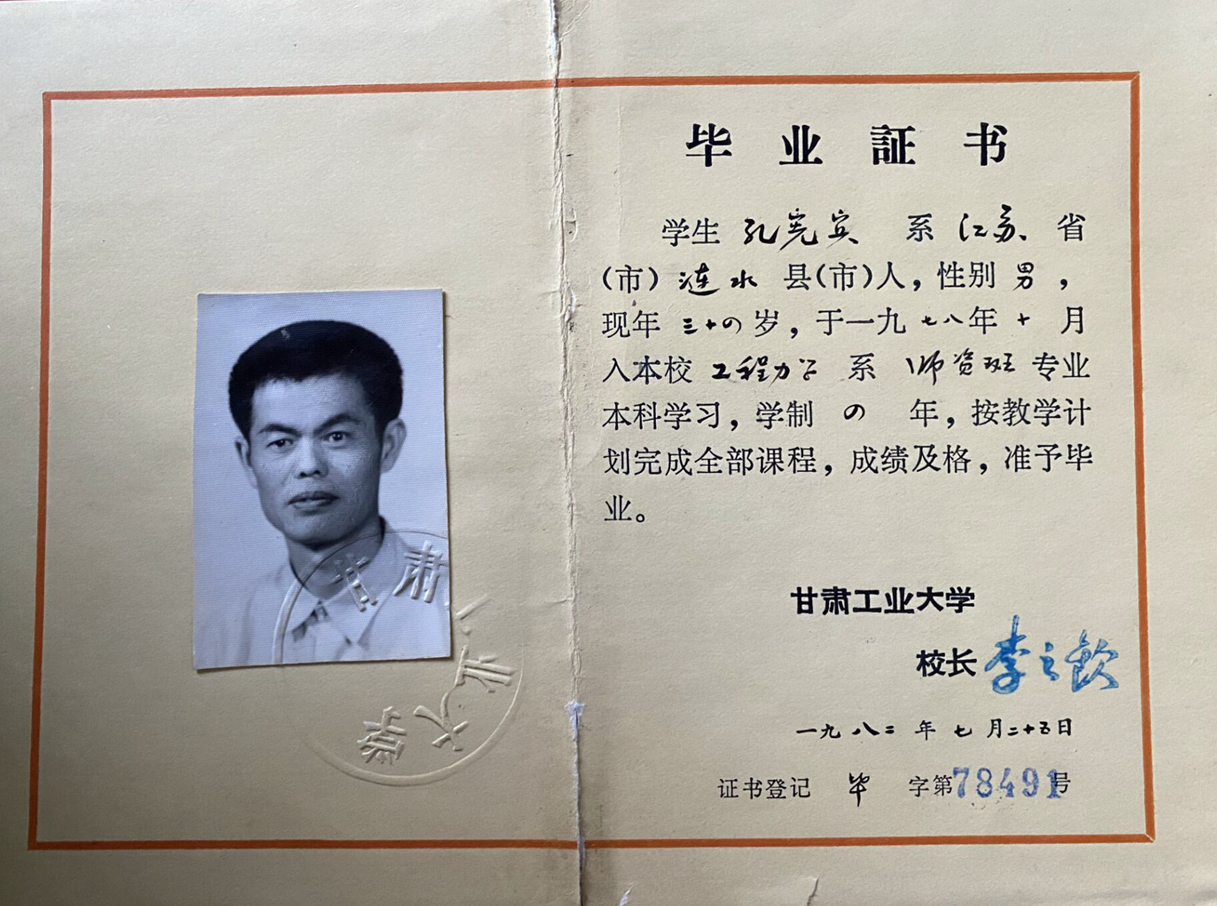 毕业証书
学生 孔宪宾 系 江苏 省
(市) 涟水 县(市)人，性别 男，
现年 三十四 岁，于一九七八年十月
入本校 工程力学 系 师资班 专业
本科学习，学制 四 年，按教学计
划完成全部课程，成绩及格，准予毕
业。
甘肃工业大学
校长 李之钦
一九八二年七月二十五日
证书登记 毕 字第78491号
甘肃工业大学